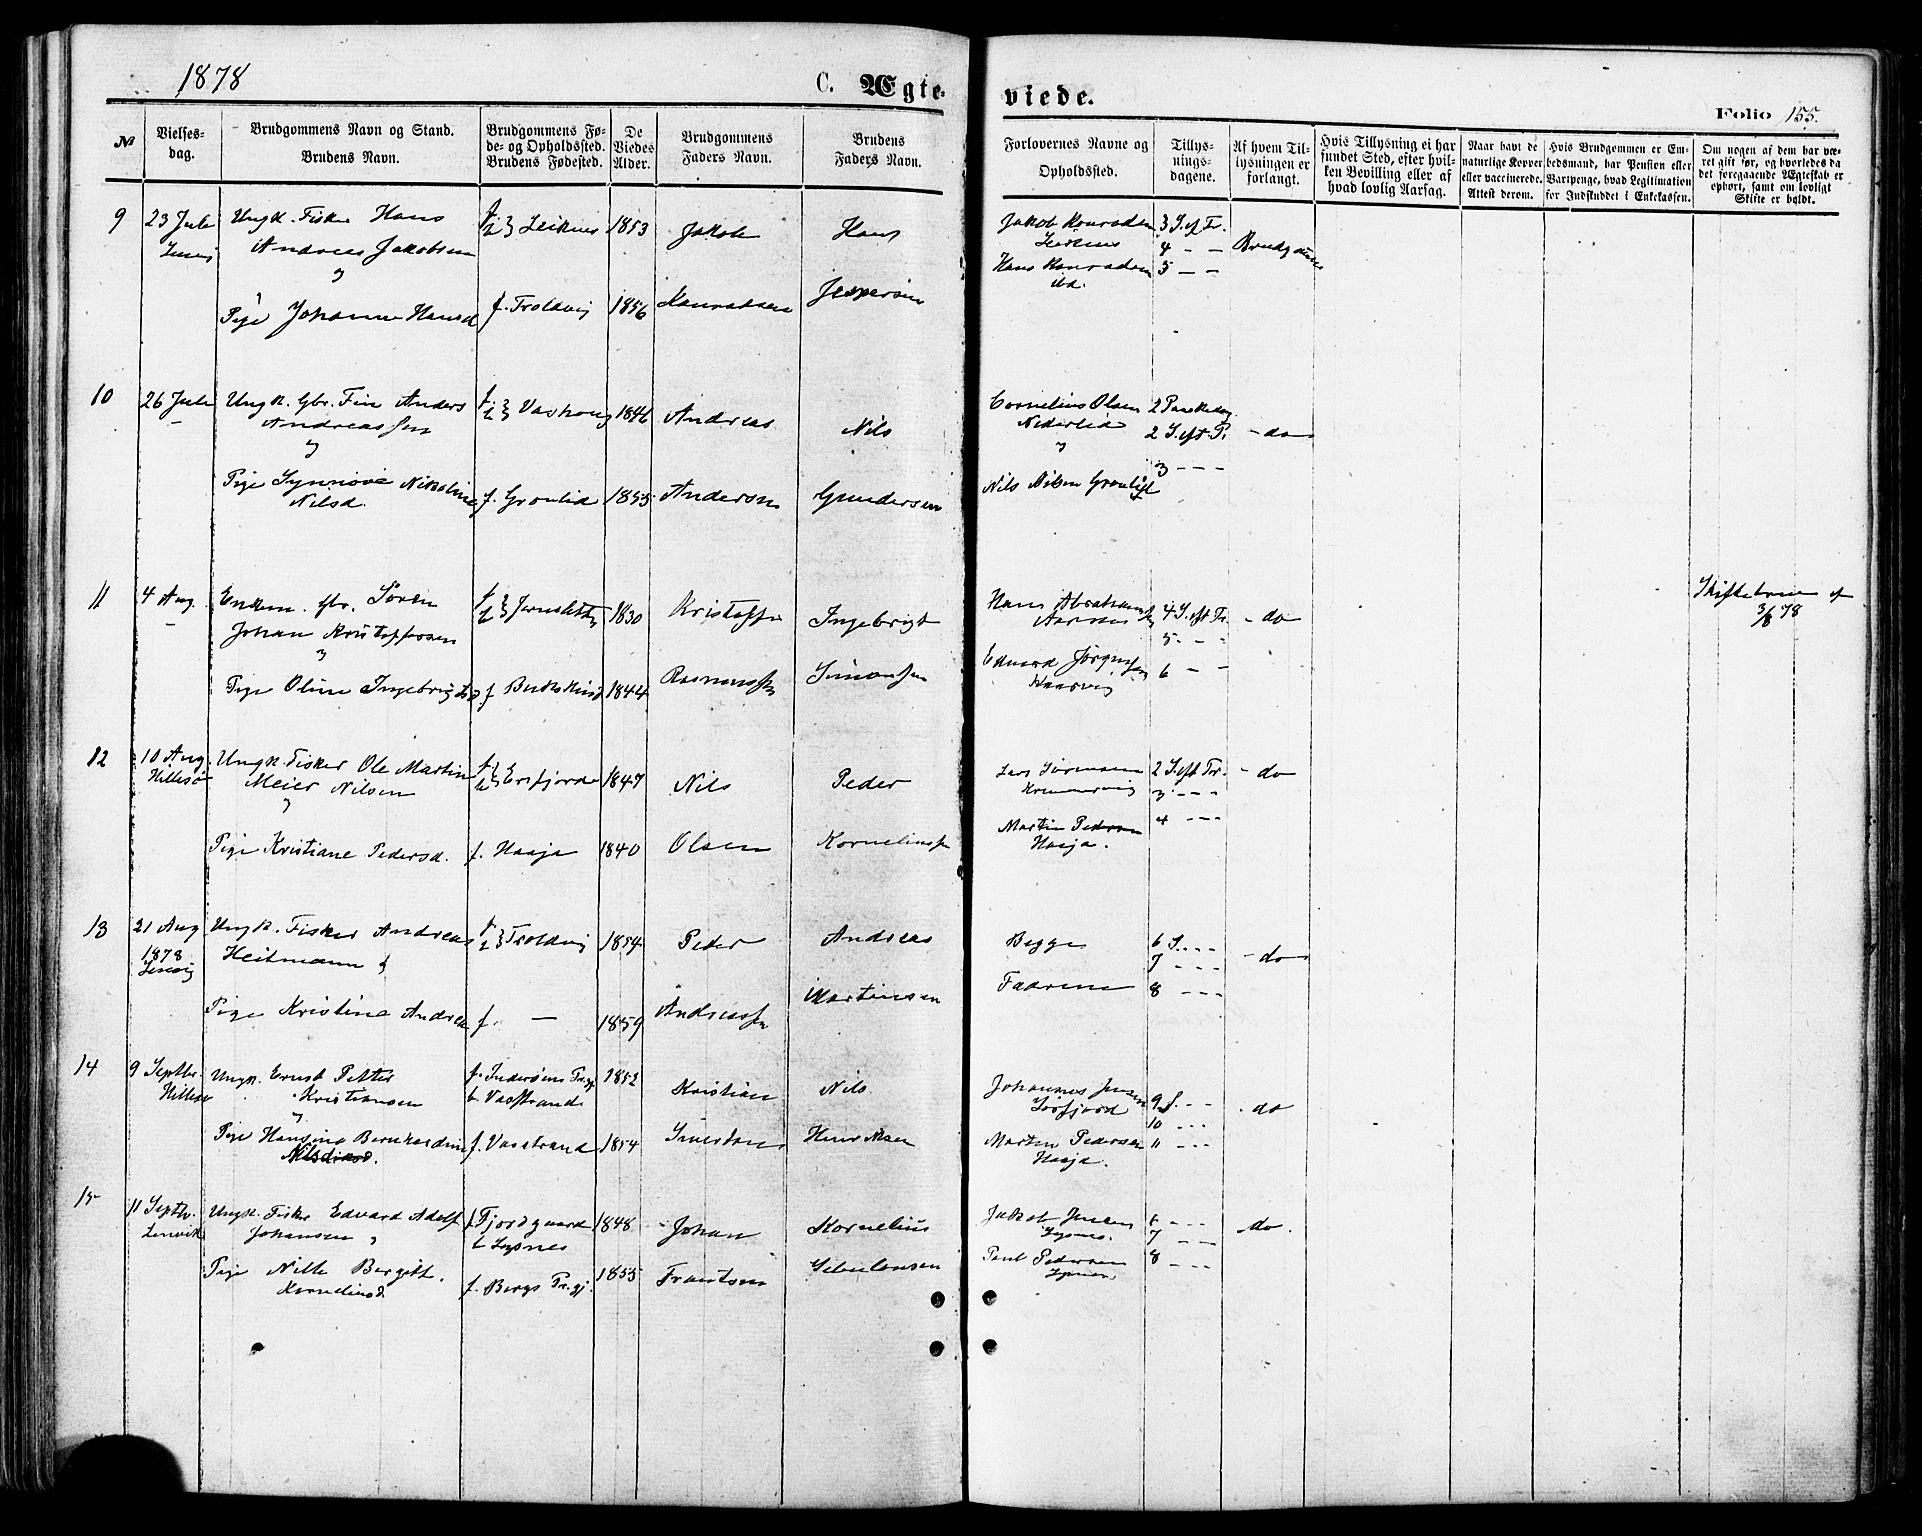 1878
C. Ægte-
viede.
Folio 155.
№
Vielses-
dag.
Brudgommens Navn og Stand.
Brudens Navn.
Brudgommens Fø-
de- og Opholdssted.
Brudens Fødested.
De
Viedes
Alder.
Brudgommens
Faders Navn.
Brudens
Faders Navn.
Forlovernes Navne og
Opholdssted.
Tillys-
nings-
dagene.
Af hvem Til-
lysningen er
forlangt.
Hvis Tillysning ei har
fundet Sted, efter hvil-
ken Bevilling eller af
hvad lovlig Aarsag.
Naar havt de
naturlige Kopper
eller vaccinerede.
Attest derom.
Hvis Brudgommen er Em-
bedsmand, har Pension eller
Vartpenge, hvad Legitimation
for Indskuddet i Enkekassen.
Om nogen af dem har væ-
ret gift før, og hvorledes da
det foregaaende Ægteskab er
ophørt, samt om lovligt
Skifte er holdt.
9 23 Juli Ungk. Fisker Hans f. b. } Leiknes 1853 Jakob Hans Jakob Konradsen 3 S. ef Tr.
Andreas Jakobsen Leiknes 4 – – Brudgommen
og Hans Konradsen 5 – –
ibd.
Pige Johanne Hansd f. Troldvig 1856 Konradsen Jespersen
10 26 Juli Ungk. Gbr. Fin Anders f. b. } 1846 Andreas Nils Cornelius Olsen 2 Paaskedag
Andreassen Nederlid 2 S. eft. P. – do
og 3 – – –
Pige Synnøve Nikoline f. Grønlid 1855 Andersen Gundersen Nils Nilsen Grønlid
Nilsd.
11 4 Aug. Enkem. Gbr. Sören f. b. } 1830 Kristoffer Ingebrigt Hans Abrahams 4 S. eft Tr. – do Skiftebrev af
Johan Kristoffersen 5 – – 3/8 78
og Edvard Jørgensen 6 –
Pige Oline Ingebrigtsd f. Bukskind 1844 Rasmussen Simonsen
12 10 Aug Ungk. Fisker Ole Martin f. b. } Ersfjord 1847 Nils Peder Lars Sørensen 2 S. eft Tr. – do
Hillesø Meier Nilsen 3 – – –
og Martin Pedersen 4 – – –
Pige Kristiane Pedersd. f. Haaja 1840 Olsen Korneliussen Haaja.
13 21 Aug Ungk. Fisker Andreas f. b. } Troldvig 1854 Peder Andreas Begge 6 S. – – –
1878 Heitmann & 7 – – – – do
Lenvig
Pige Kristine Andrea f. — 1859 Andreassen Martinsen Fædrene 8 – – –
14 9 Septbr. Ungk. Ernst Petter f. Inderøens Pr.gj 1852 Kristian Nils Johannes Jensen 9 S. – –
Hillesø Kristiansen b. Vasstrand 10 – – – . do
og
Pige Hansine Bernhardine f. Vasstrand 1854 Henriksen Martin Pedersen 11 – – –
Nilsd. Haaja.
15 11 Septbr. Ungk. Fisker Edvard Adolf f. Fjordgaard 1848 Johan Kornelius Jakob Jensen 6 – – – do.
Lenvik Johansen og b. Lysnes Lysnes. 7 – – –
Pige Nille Bergitt. f. Bergs Pr.gj. 1855 Frantsen Paul Pedersen 8 – – –
Kornelinsd. Lysnes